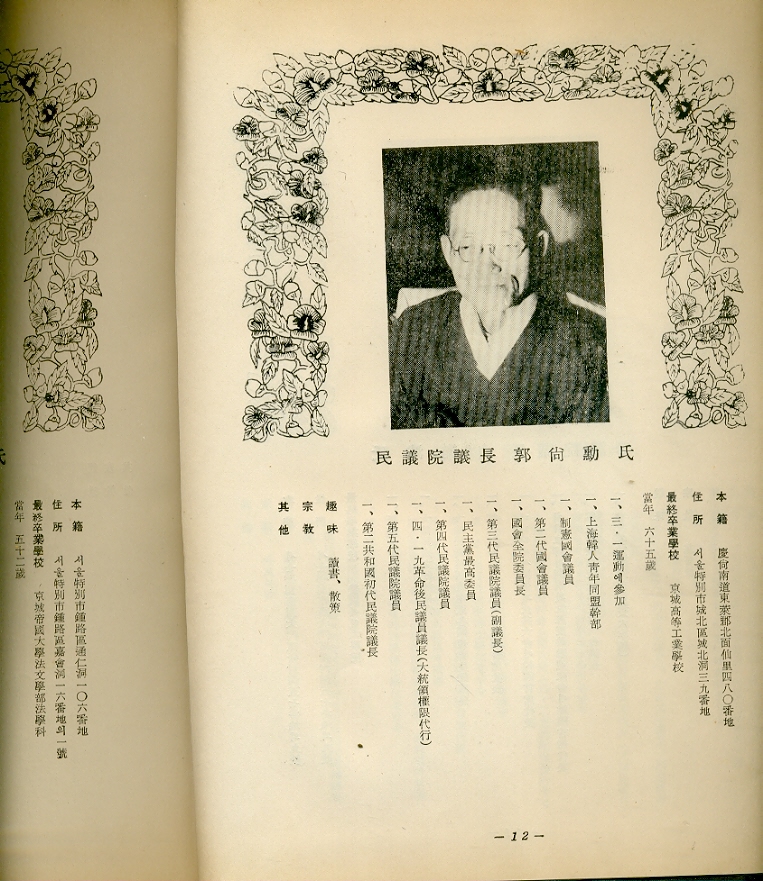 民議院議長 郭尙勳 氏
本籍 慶尙南道東萊郡北面仙里四八〇番地
住所 서울特別市城北區城北洞三九番地
最終卒業學校 京城高等工業學校
當年 六十五歲
一、三・一運動에參加
一、上海韓人靑年同盟幹部
一、制憲國會議員
一、第二代國會議員
一、國會全院委員長
一、第三代民議院議員(副議長)
一、民主黨最高委員
一、第四代民議院議員
一、四・一九革命後民議員議長(大統領權限代行)
一、第五代民議院議員
一、第二共和國初代民議院議長
趣味 讀書、散策
宗敎
其他
－12－
氏
本籍 서울特別市鍾路區通仁洞一〇六番地
住所 서울特別市鍾路區嘉會洞一六番地의一號
最終卒業學校 京城帝國大學法文學部法學科
當年 五十二歲